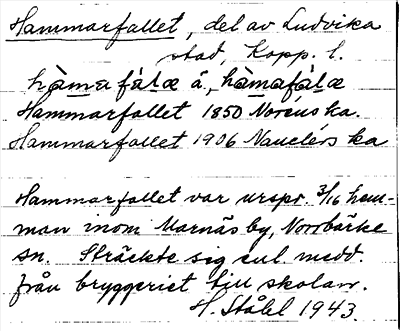 Hammarfallet, del av Ludvika
stad Kopp. l.
hàmafálæ å, hàmafálæ
Hammarfallet 1850 Noréns ka.
Hammarfallet 1906 Nauclérs ka
Hammarfallet var urspr. 3/16 hem-
man inom Marnäs by, Norrbärke
sn. Sträckte sig enl. medd.
från bryggeriet till skolan.
H. Ståhl 1943.